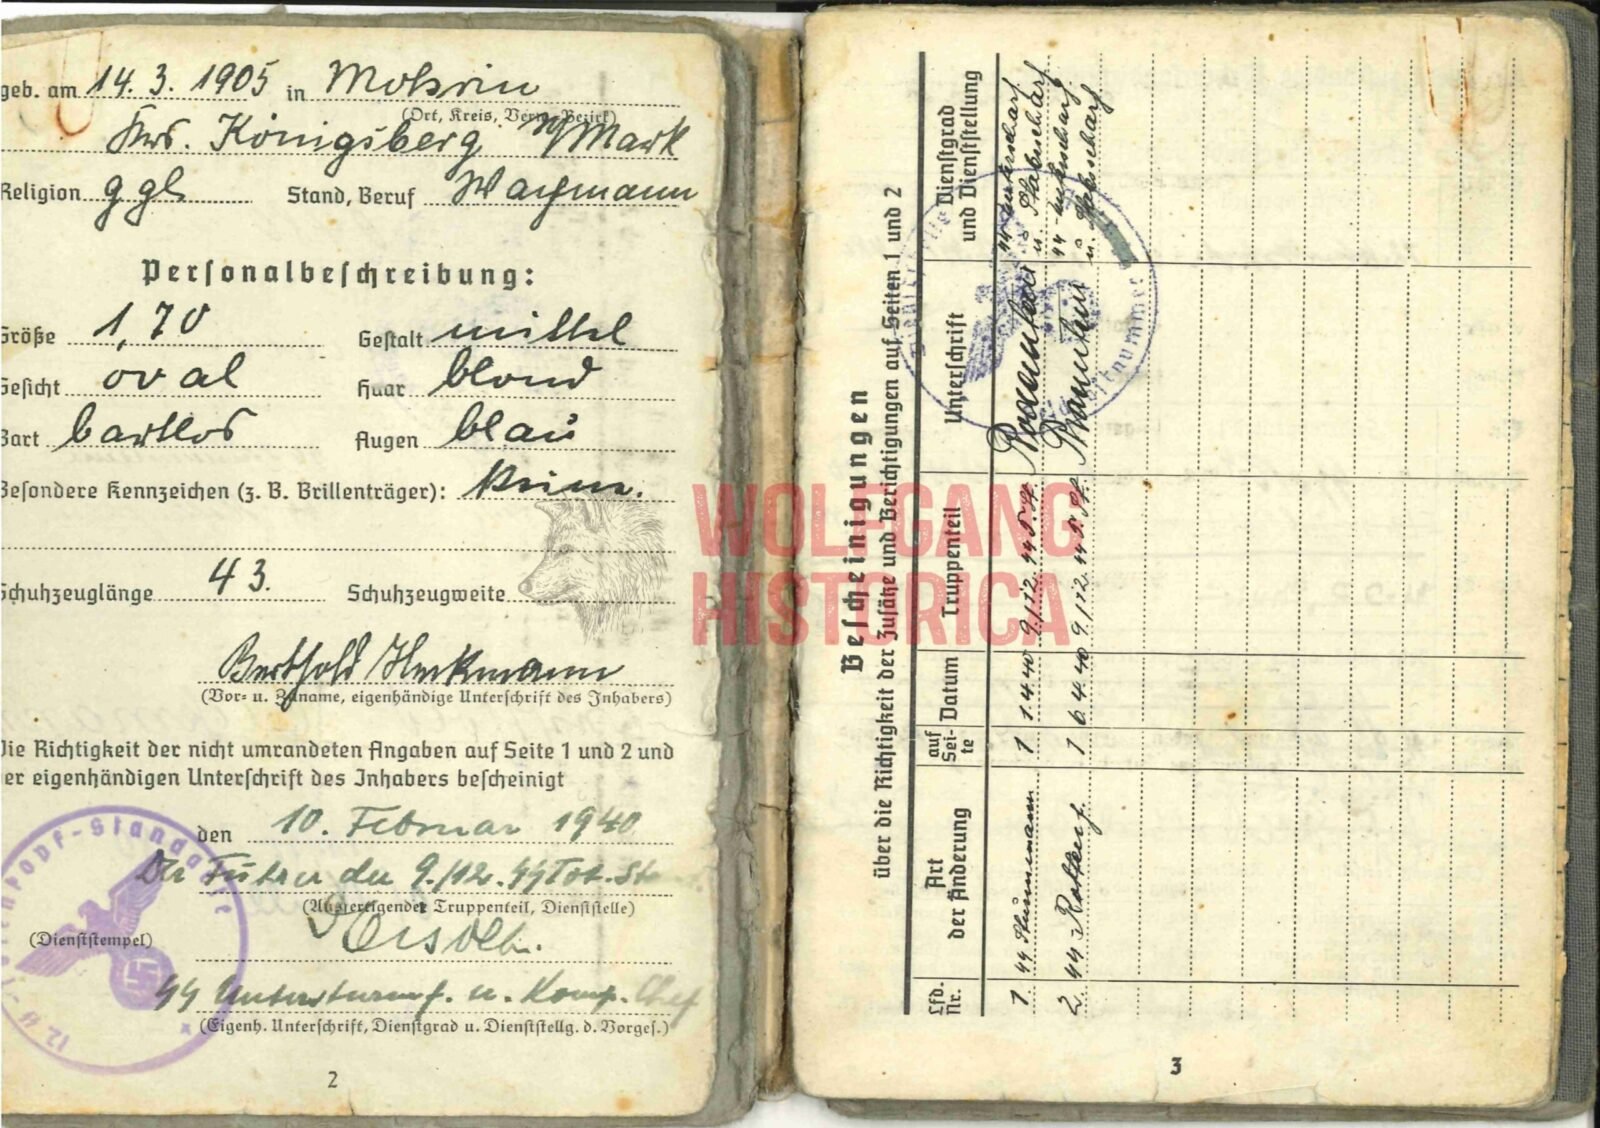 geb. am 14. 3. 1905 in Mohrin
(Ort, Kreis, Verw.-Bezirk)
Krs. Königsberg N/Mark
Religion ggl. Stand, Beruf
Personalbeschreibung:
Größe 1,70 Gestalt mittel
Gesicht oval Haar blond
Bart bartlos Augen blau
Besondere Kennzeichen (z. B. Brillenträger): keine.
Schuhzeuglänge 43. Schuhzeugweite
Berthold
(Vor- u. Zuname, eigenhändige Unterschrift des Inhabers)
Die Richtigkeit der nicht umrandeten Angaben auf Seite 1 und 2 und
der eigenhändigen Unterschrift des Inhabers bescheinigt
den 10. Februar 1940
Der Führer der 9./12. SS Tot. St
(Ausfertigender Truppenteil, Dienststelle)
(Dienststempel)
SS Untersturmf. u. Komp. Chef
(Eigenh. Unterschrift, Dienstgrad u. Dienststellg. d. Vorges.)
2
12. SS Totenkopf-Standarte
WOLFGANG
HISTORICA
Bescheinigungen
über die Richtigkeit der Zusätze und Berichtigungen auf Seiten 1 und 2
Lfd. Nr. Art der Änderung auf Seite Datum Truppenteil Unterschrift Dienstgrad und Dienststellung
1. SS Sturmmann 1 1.4.40 9./12. SS T. St. SS-Unterscharf. u. Stabsscharf.
2. SS Rottenf. 1 6.4.40 9./12. SS T. St. SS-Unterscharf. u. Stabsscharf.
3